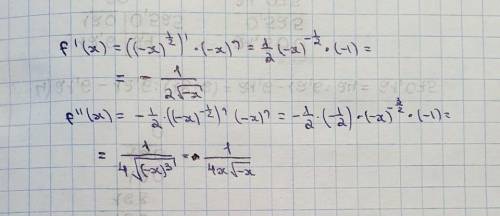 f'(x) = ((-x)^{1/2})' · (-x)' = 1/2 (-x)^{-1/2} · (-1) =
= - 1/(2√-x)
f''(x) = -1/2 · ((-x)^{-1/2})' (-x)' = -1/2 · (-1/2) · (-x)^{-3/2} · (-1) =
= 1/(4√(-x)³) = · 1/(4x√-x)